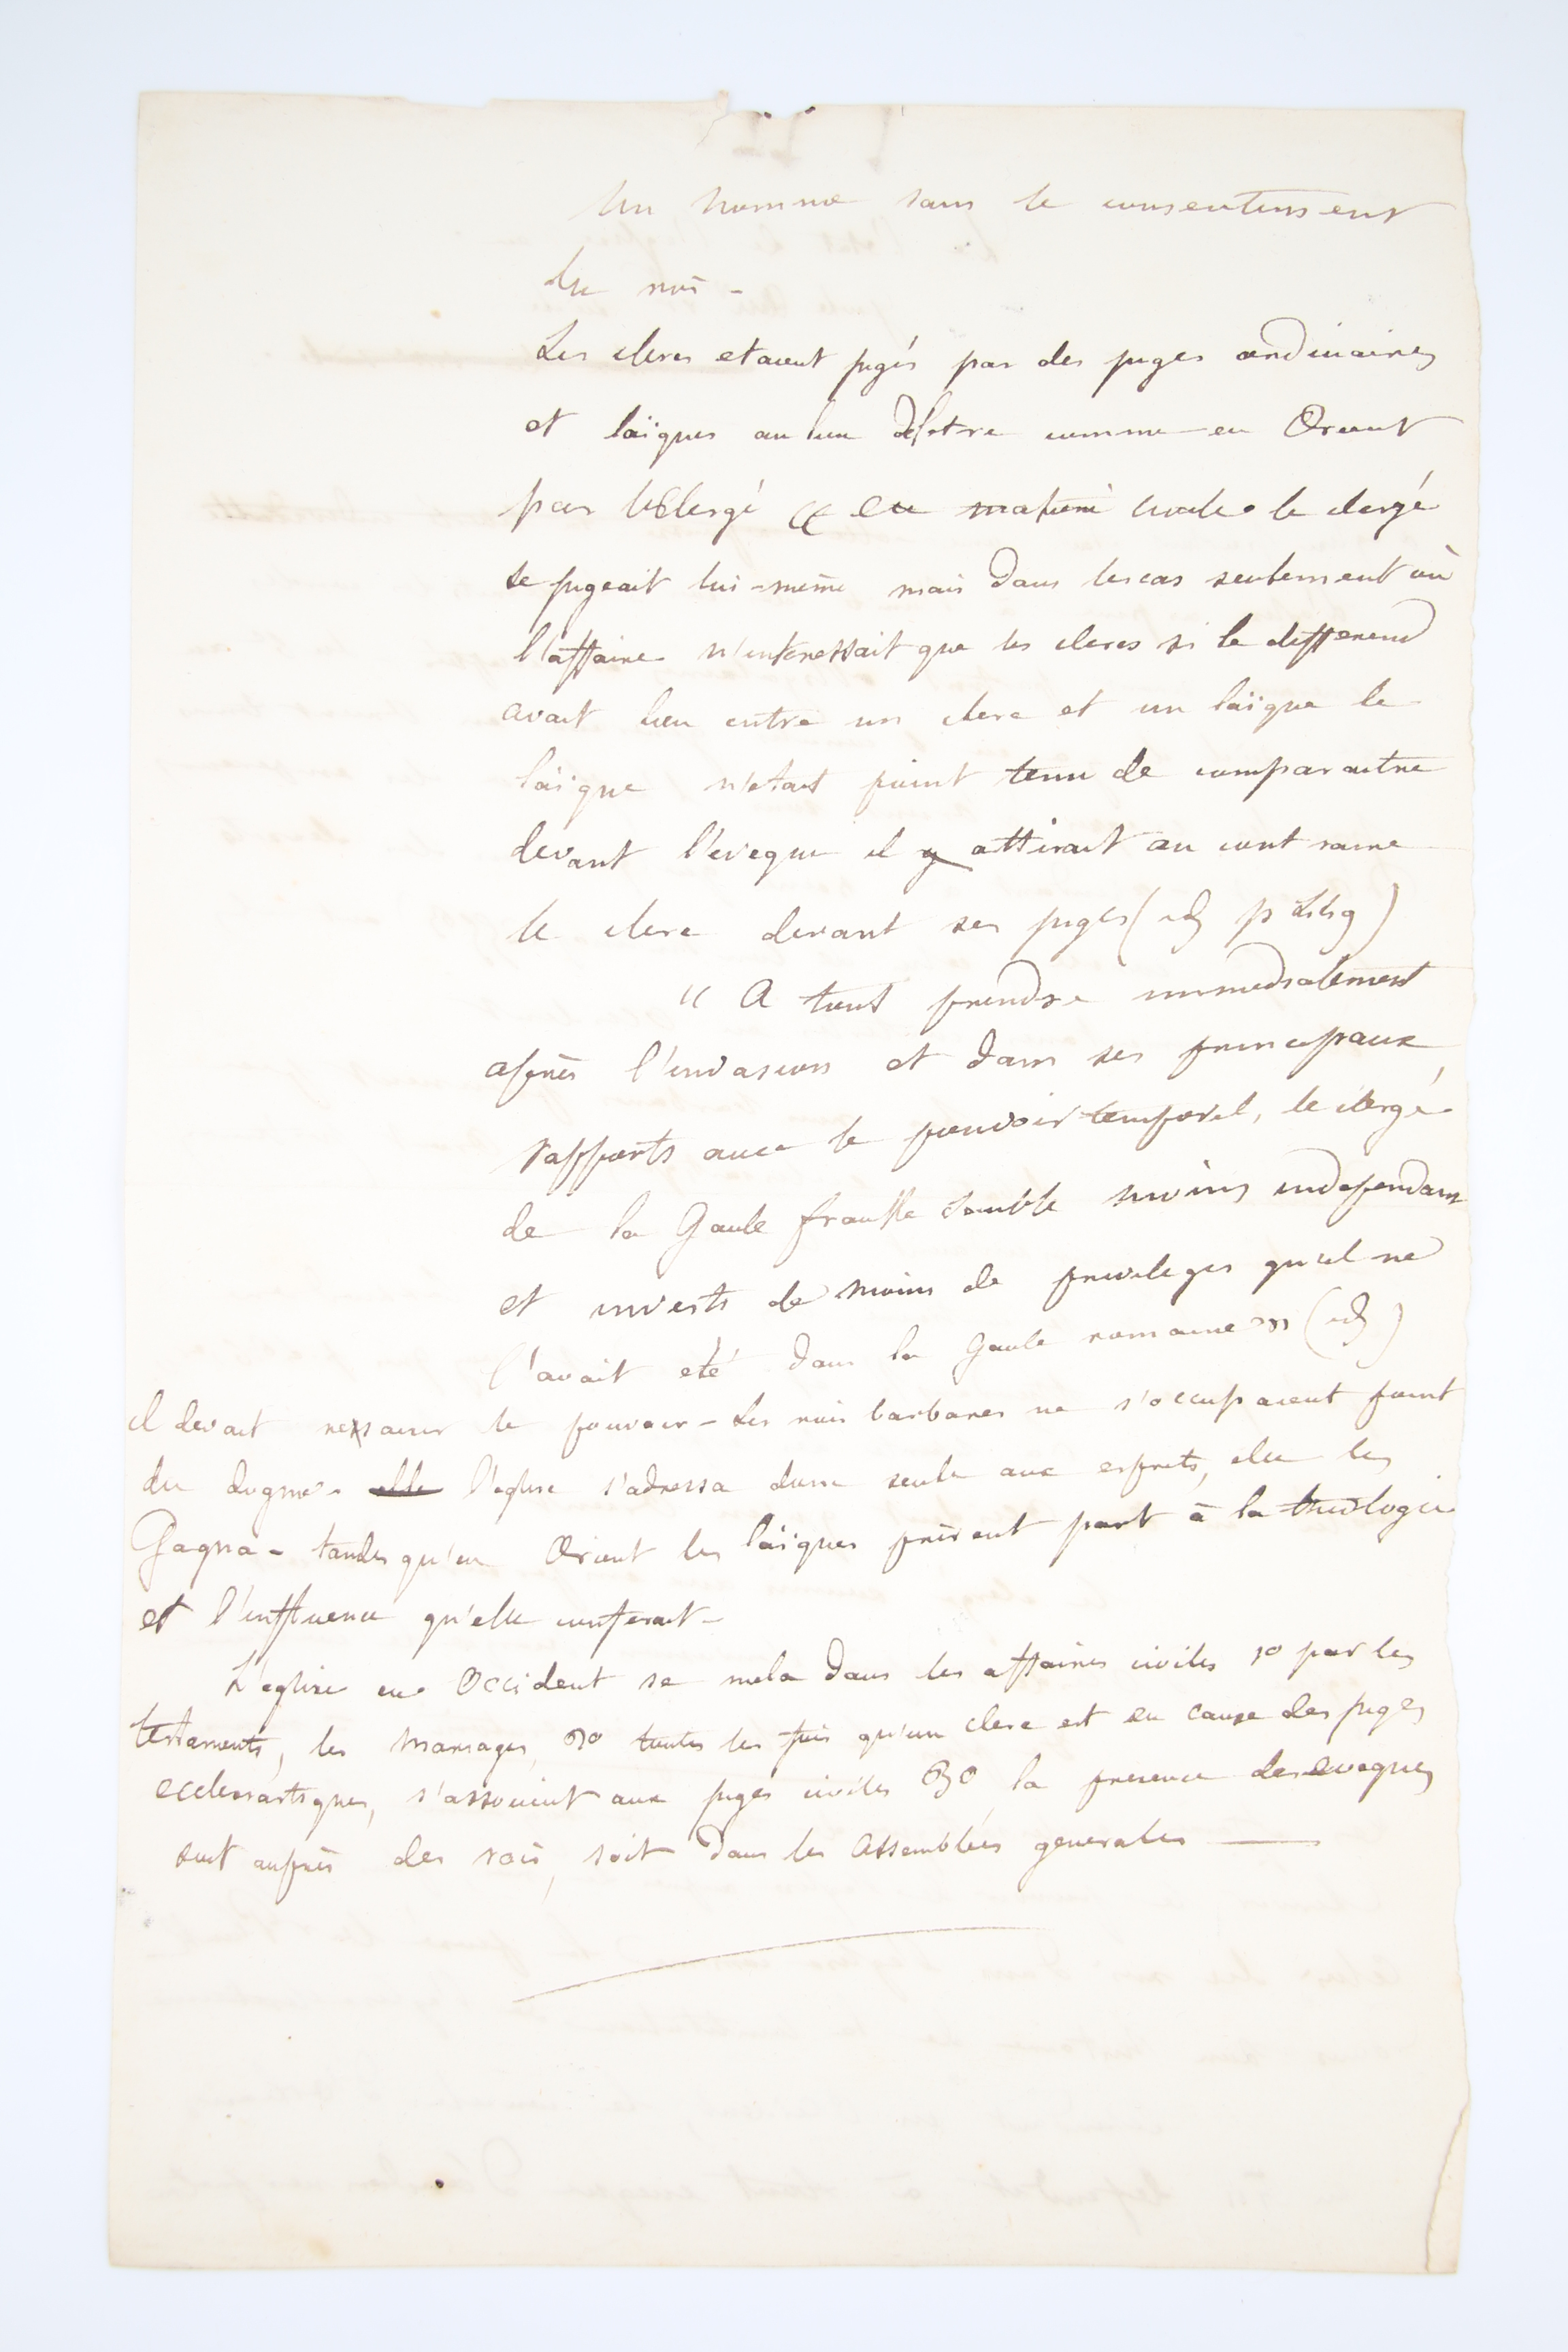 Un homme sans le consentement
du roi -
Les clercs etaient jugés par des juges ordinaires
et laïques au lieu d'etre comme en Orient
par le Clergé « en matière civile. le clergé
se jugeait lui-même mais dans les cas seulement où
l'affaire n'interessait que les clercs si le differend
avait lieu entre un clerc et un laïque le
laïque n'etait point tenu de comparaitre
devant l'eveque il y attirait au contraire
le clerc devant ses juges (id p
« A tout prendre immediatement
après l'invasion et dans ses principaux
rapports avec le pouvoir temporel, le clergé
de la Gaule franke semble moins independant
et investi de moins de privileges qu'il ne
l'avait eté dans la Gaule romaine » (id)
il devait ressaisir le pouvoir - Les rois barbares ne s'occupaient point
du dogme - l'eglise s'adressa donc seule aux esprits, elle les
Gagna - tandis qu'en Orient les laïques prirent part à la theologie
et l'influence qu'elle conferait -
L'eglise en Occident se mela dans les affaires civiles 1o par les
testaments, les mariages, 2o toutes les fois qu'un clerc est en cause des juges
ecclesiastiques, s'associent aux juges civiles 3o la presence des eveques
soit auprès des rois, soit dans les assemblées generales